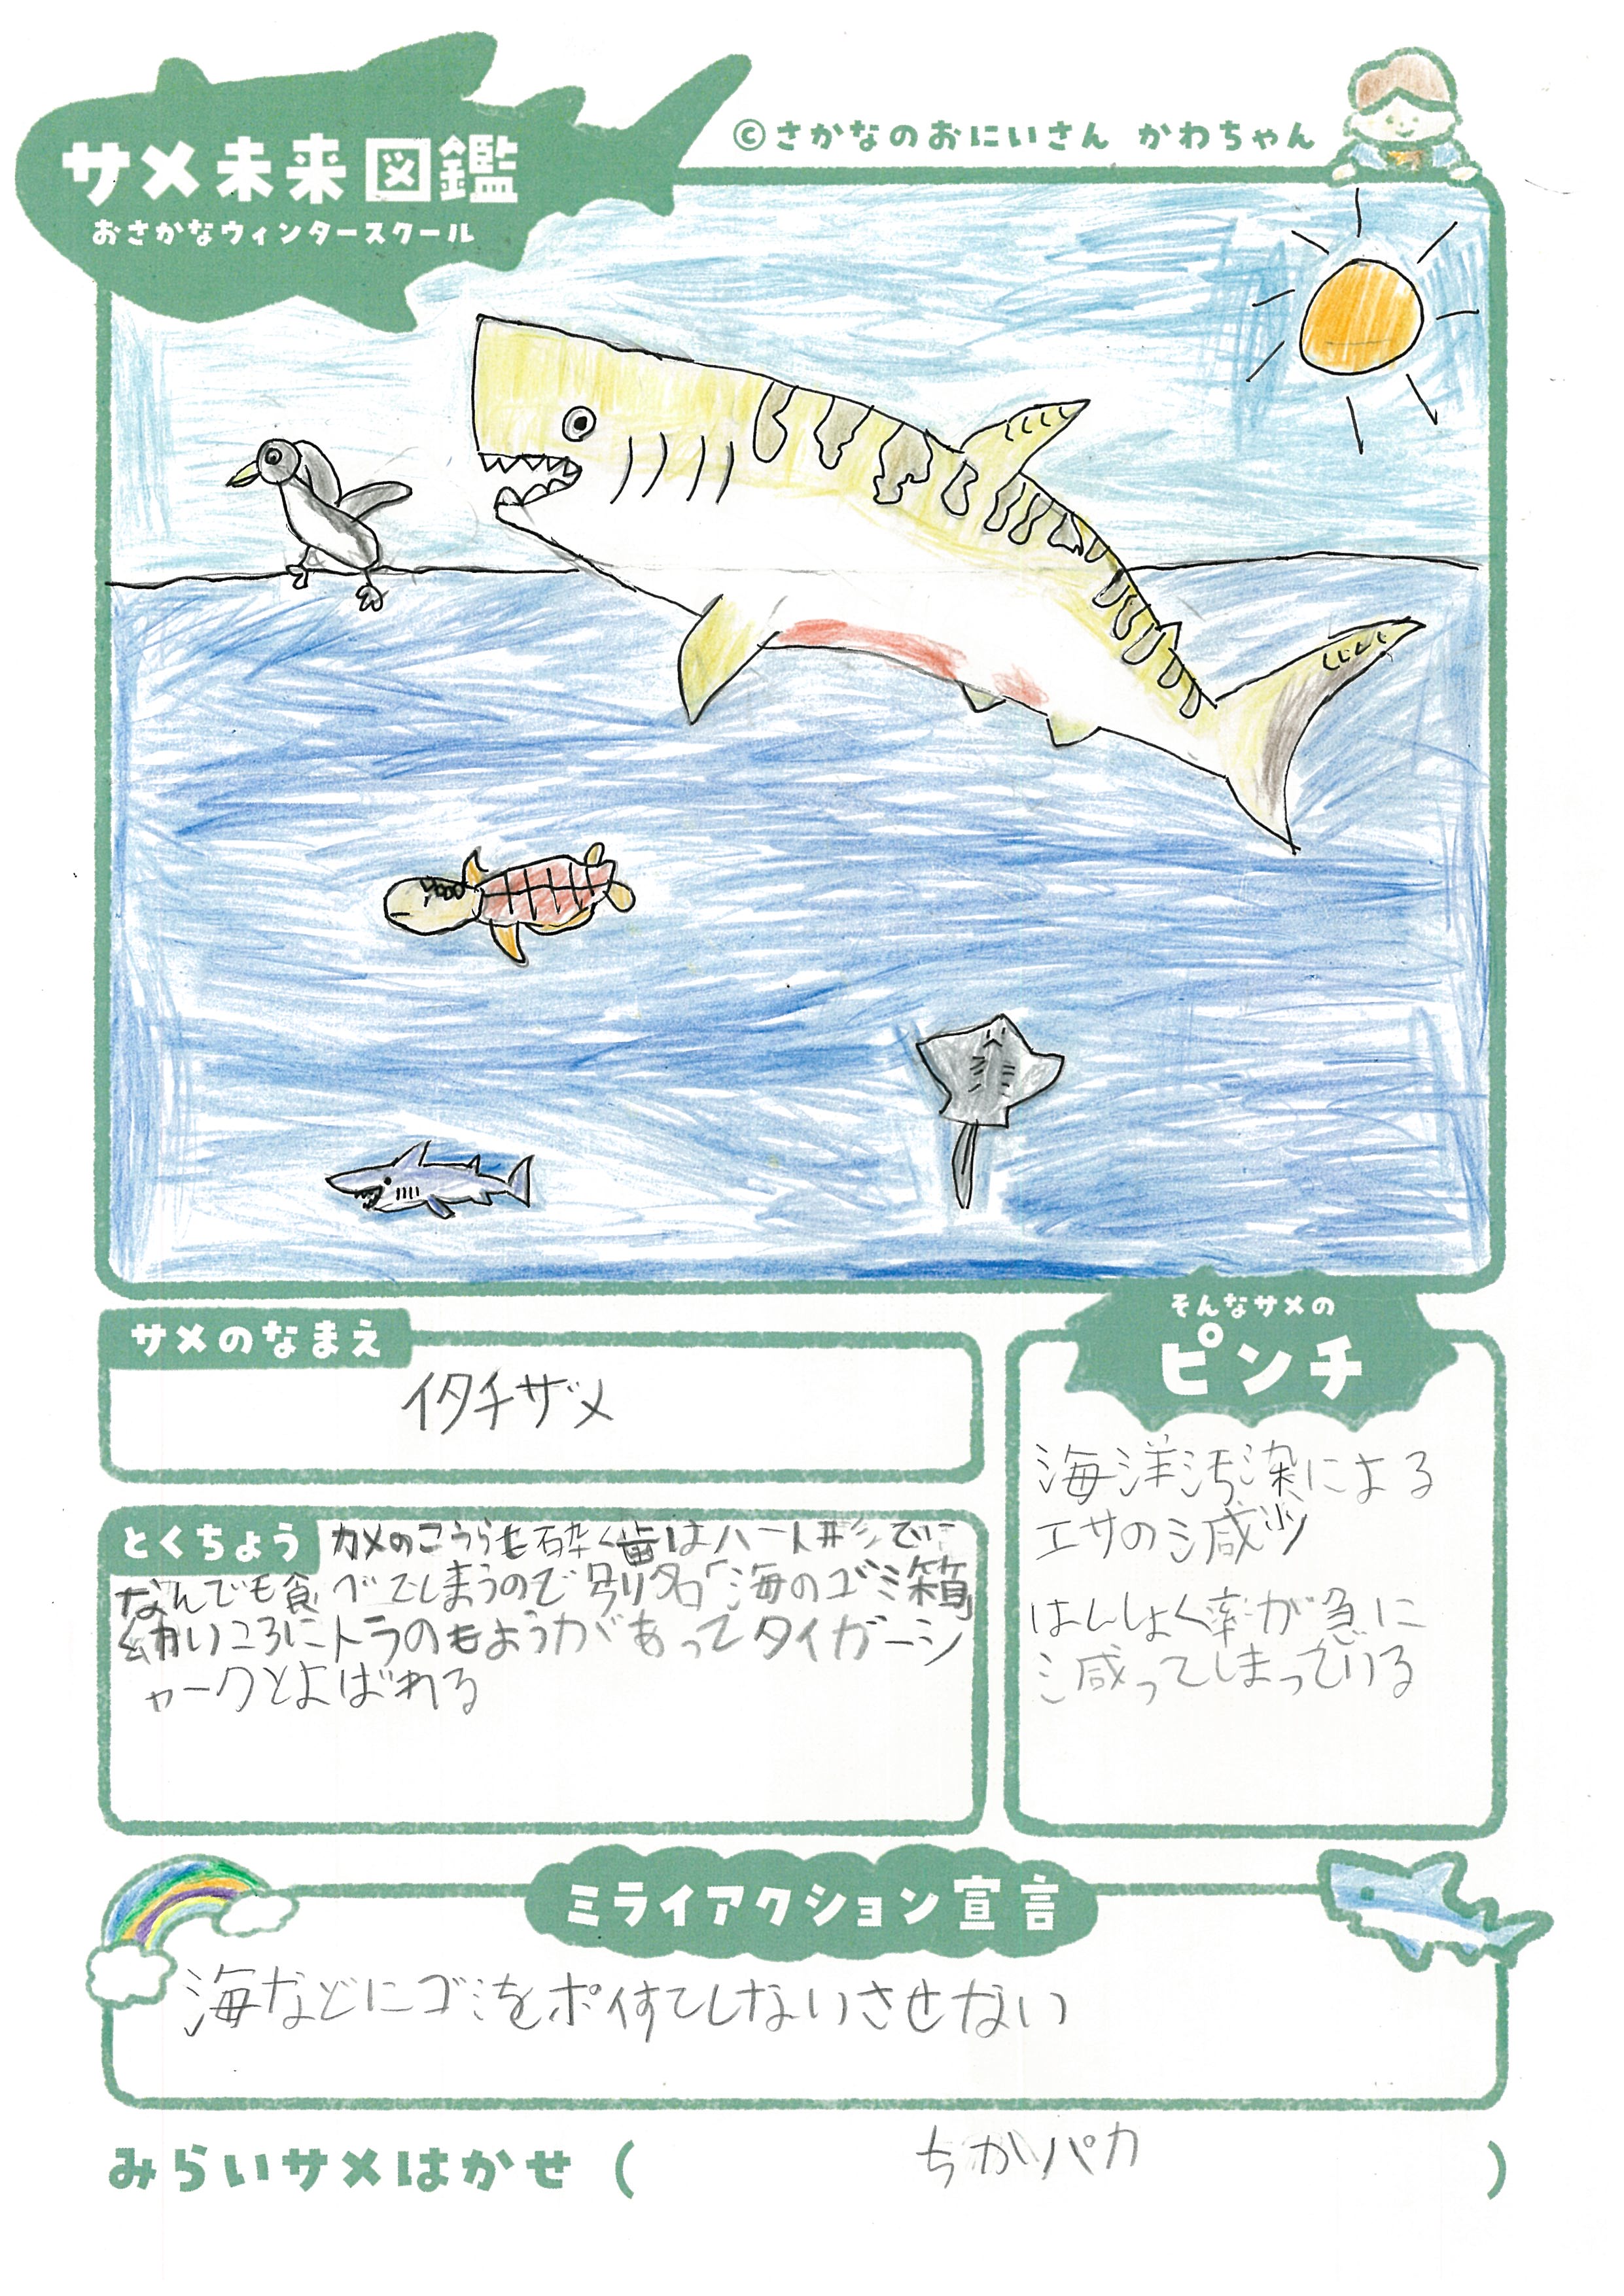 サメ未来図鑑
おさかなウィンタースクール
©さかなのおにいさん かわちゃん
サメのなまえ
イタチザメ
とくちょう
カメのこうらも砕く歯はハート形でに
なんでも食べてしまうので別名「海のゴミ箱」
幼いころにトラのもようがあってタイガーシ
ャークとよばれる
そんなサメの
ピンチ
海洋汚染による
エサの減少
はんしょく率が急に
減ってしまっている
ミライアクション宣言
海などにゴミをポイすてしないさせない
みらいサメはかせ（ ちかパカ ）